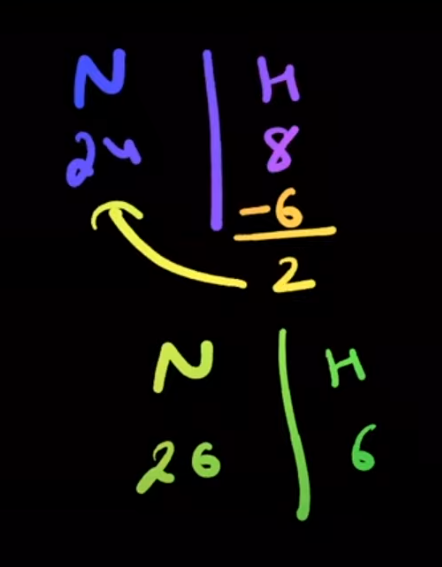 N H
24 8
-6
2
N H
26 6